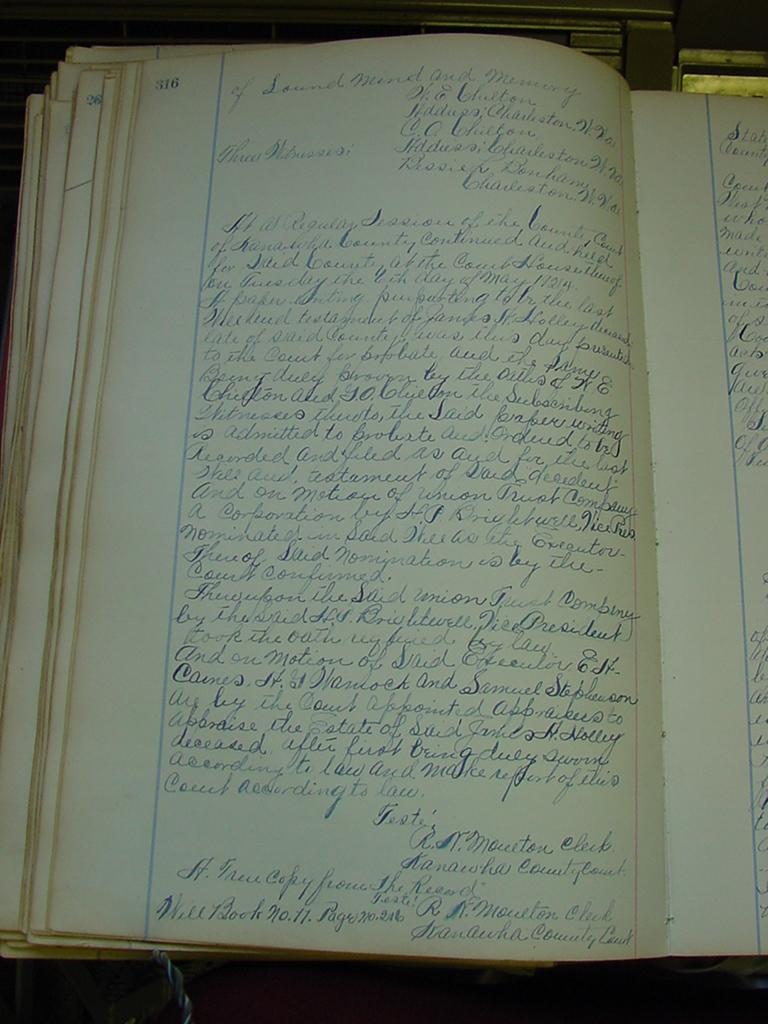 316
26
of Sound mind and memory
W. E. Chilton
Address; Charleston. W. Va.
C. O. Chilton
Three Witnesses;
Address; Charleston W. Va.
Bessie L. Bonham
Charleston. W. Va.
At a Regular Session of the County Court
of Kanawha County continued and held
for Said County, at the Court House thereof
on Tuesday the 6th day of May 1924.
A paper writing purporting to be the last
Will and testament of James H. Holley deceased
late of said County, was this day presented
to the Court for probate, and the Same
Being duly proven by the oaths of W E
Chilton and J.O. Chilton the Subscribing
Witnesses thereto, the Said paper writing
is admitted to probate and Ordered to be
Recorded and filed as and for the last
Will and testament of Said decedent
And on Motion of Union Trust Company
A Corporation by H. P. Brightwell, Vice Pres
nominated in said Will as the Executor-
Thereof Said nomination is by the-
Court confirmed.
Thereupon the Said Union Trust Company
by the said H.P. Brightwell, Vice President
took the oath required by law.
And on Motion of Said Executor E. H-
Caines. H. G Warnock And Samuel Stephenson
are by the Court appointed appraisers to
appraise the Estate of Said James H. Holley
deceased, after first being duly sworn
according to law and make report of this
Court according to law.
Teste;
R. N. Moulton Clerk
Kanawha County Court.
A. True Copy from the Record
Teste: R. N. Moulton Clerk
Will Book No. 17. Page No. 216
Kanawha County Court
State
County
Court
made
and
of